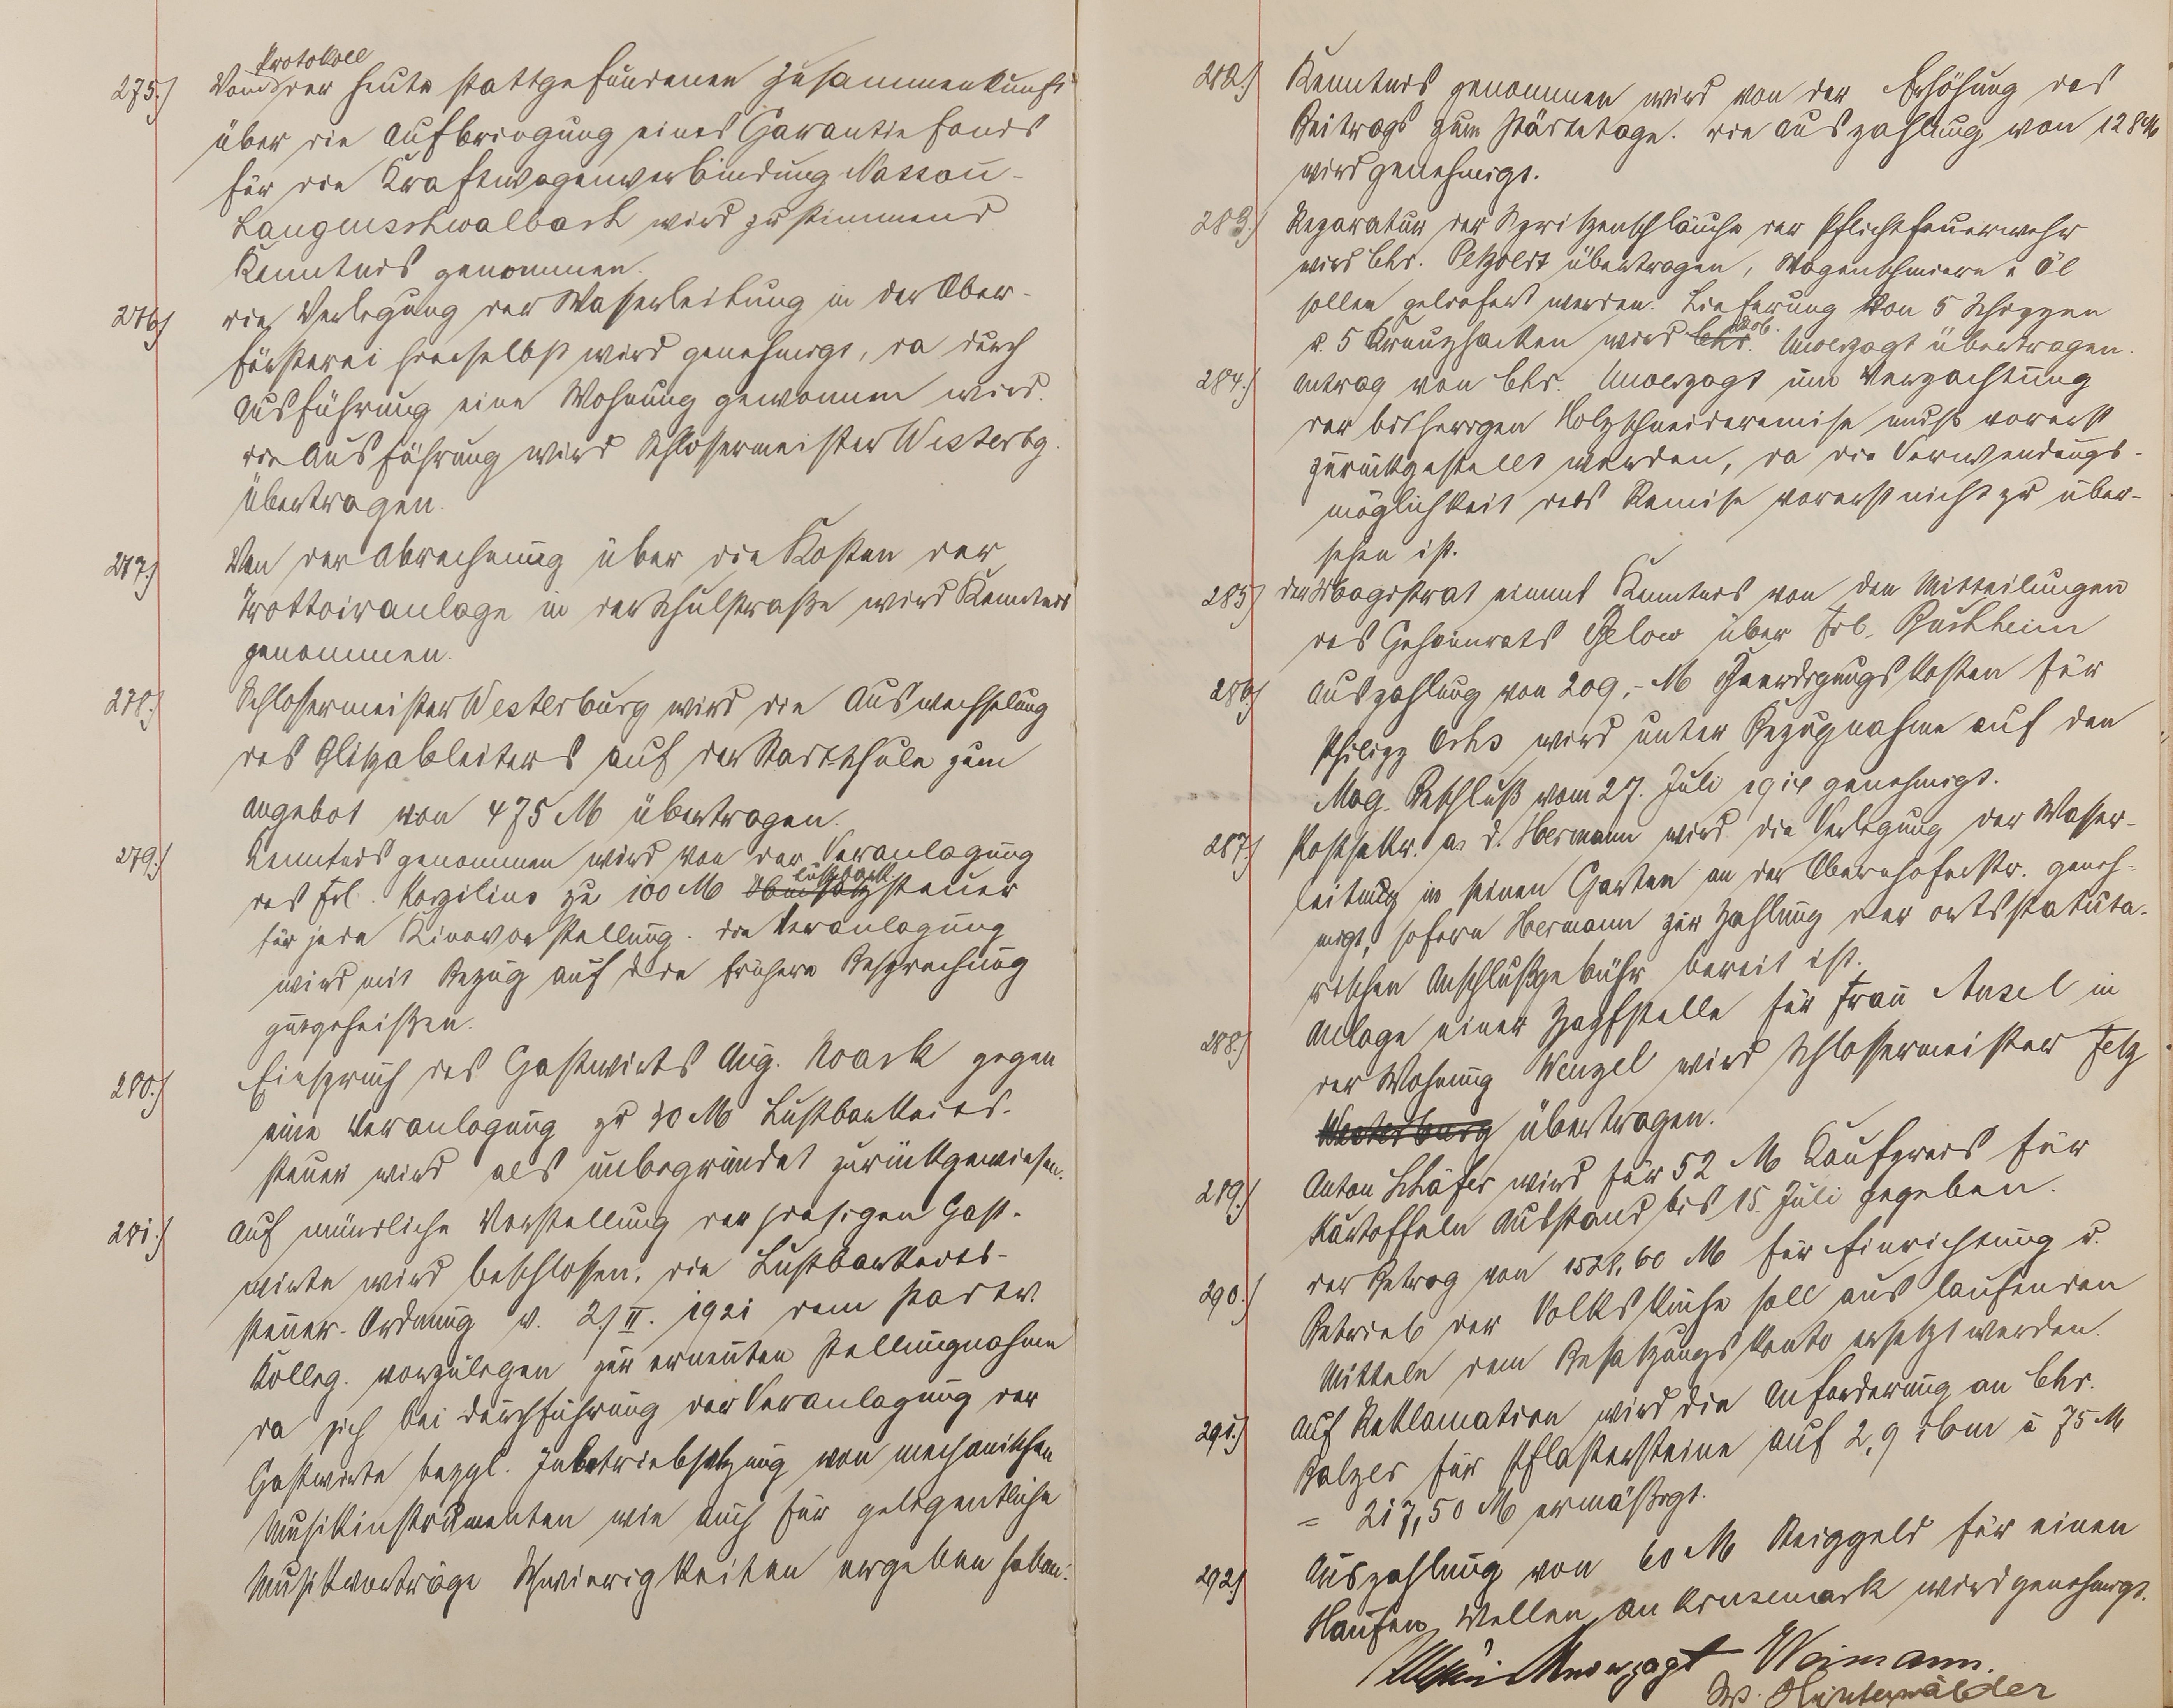 Protokoll
275.) Von der heute stattgefundenen Zusammenkunft
über die Aufbringung eines Garantiefonds
für die Kraftwagenverbindung Nassau-
Langenschwalbach wird zustimmend
Kenntnis genommen.
276) die Verlegung der Wasserleitung in der Ober-
försterei hierselbst wird genehmigt, da durch
Ausführung eine Wohnung gewonnen wird.
die Ausführung wird Schlossermeister Westerbg.
übertragen.
277.) Von der Abrechnung über die Kosten der
Trottoiranlage in der Schulstraße wird Kenntnis
genommen.
278.) Schlossermeister Westerburg wird die Auswechselung
des Blitzableiters auf der Stadtschule zum
Angebot von 475 M übertragen.
279.) Kenntnis genommen wird von der Veranlagung
lustbark
des Frl. Korzilius zu 100 M steuer
für jede Kinovorstellung. die Veranlagung
wird mit Bezug auf die frühere Besprechung
gutgeheißen.
280.) Einspruch des Gastwirts Aug. Noack gegen
eine Veranlagung zu 30 M Lustbarkeits-
steuer wird als unbegründet zurückgewiesen.
281.) Auf mündliche Vorstellung der hiesigen Gast-
wirte wird beschlossen, die Lustbarkeits-
steuer-Ordnung v. 2/II. 1921 dem Stadtv.
Kolleg. vorzulegen zur erneuten Stellungnahme
da sich bei Durchführung der Veranlagung der
Gastwirte bezgl. Inbetriebsetzung von mechanischen
Musikinstrumenten wie auch für gelegentliche
Musikvorträge Schwierigkeiten ergeben haben.
282.) Kenntnis genommen wird von der Erhöhung des
Beitrags zum Städtetage. die Auszahlung von 128 M
wird genehmigt.
283.) Reparatur der Spritzenschläuche der Pflichtfeuerwehr
wird Chr. Petzoldt übertragen, Wagenschmiere u Öl
sollen geliefert werden. Lieferung von 5 Schippen
u. 5 Kreuzhacken wird Chr. Unverzagt übertragen.
284.) Antrag von Chr. Unverzagt um Verpachtung
der bisherigen Holzschneideremise muß vorerst
zurückgestellt werden, da die Verwendungs-
möglichkeit der Remise vorerst nicht zu über-
sehen ist.
285) der Magistrat nimmt Kenntnis von den Mitteilungen
des Geheimrats Below über Frl. Buchheim
286) Auszahlung von 209,- M Beerdigungskosten für
Philipp Ochs wird unter Bezugnahme auf den
Mag. Beschluß vom 27. Juli 1914 genehmigt.
287.) Postsekr. a. D. Hermann wird die Verlegung der Wasser-
leitung in seinen Garten an der Obernhoferstr. geneh-
migt, sofern Hermann zur Zahlung der ortsstatuta-
rischen Anschlußgebühr bereit ist.
288.) Anlage einer Zapfstelle für Frau Ansel in
der Wohnung Wenzel wird Schlossermeister Felz
Westerburg übertragen.
289.) Anton Schäfer wird für 52 M Kaufpreis für
Kartoffeln Ausstand bis 15. Juli gegeben.
290.) der Betrag von 1528,60 M für Einrichtung u.
Betrieb der Volksküche soll aus laufenden
Mitteln dem Besatzungskonto ersetzt werden.
291.) Auf Reklamation wird die Anforderung an Chr.
Balzer für Pflastersteine auf 2,9 cbm à 75 M
= 217,50 M ermäßigt.
292.) Auszahlung von 60 M Steiggeld für einen
Haufen Wellen an Krusemark wird genehmigt.
Unverzagt Weimann.
W. Hinterwälder